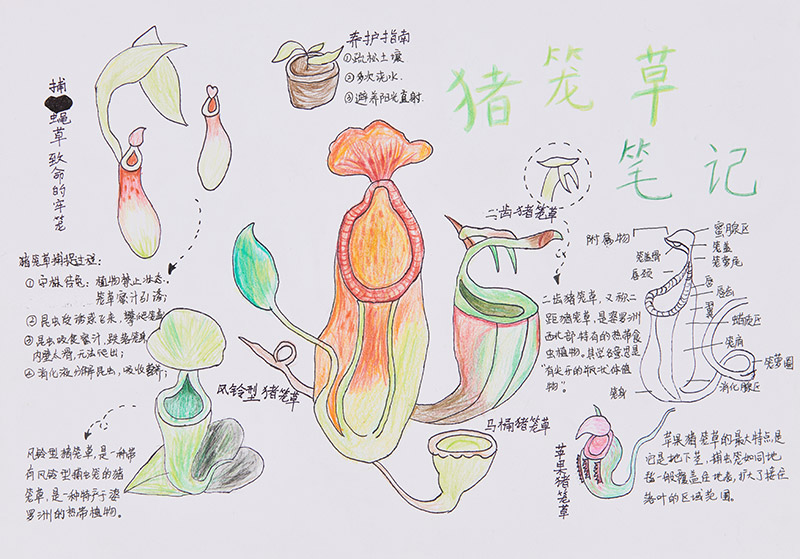 猪笼草
笔记
养护指南
①疏松土壤
②多次浇水.
③避养阳光直射.
捕蝇草致命的牢笼
猪笼草捕捉过程:
①守株待兔:植物禁止状态.
笼草蜜汁引诱;
②昆虫被诱惑飞来,攀爬笼
③昆虫吸食蜜汁,跌落笼
内壁太滑,无法爬出;
④消化液分解昆虫,吸收
风铃型猪笼草
风铃型猪笼草,是一种带
有风铃型捕虫笼的猪
笼草,是一种特产于婆
罗洲的热带植物。
二齿猪笼草
二齿猪笼草,又称二
距猪笼草,是婆罗洲
西北部特有的热带食
虫植物。其学名意思是
“有尖牙的瓶状体植
物”。
附属物
蜜腺区
笼盖
笼蔓尾
唇
翼
蜡质区
笼肩
笼蔓圈
消化腺区
笼身
马桶猪笼草
苹果猪笼草
苹果猪笼草的最大特点是
它是地下茎,捕虫笼如同地
毯一般覆盖在地表,扩大了接住
落叶的区域范围。